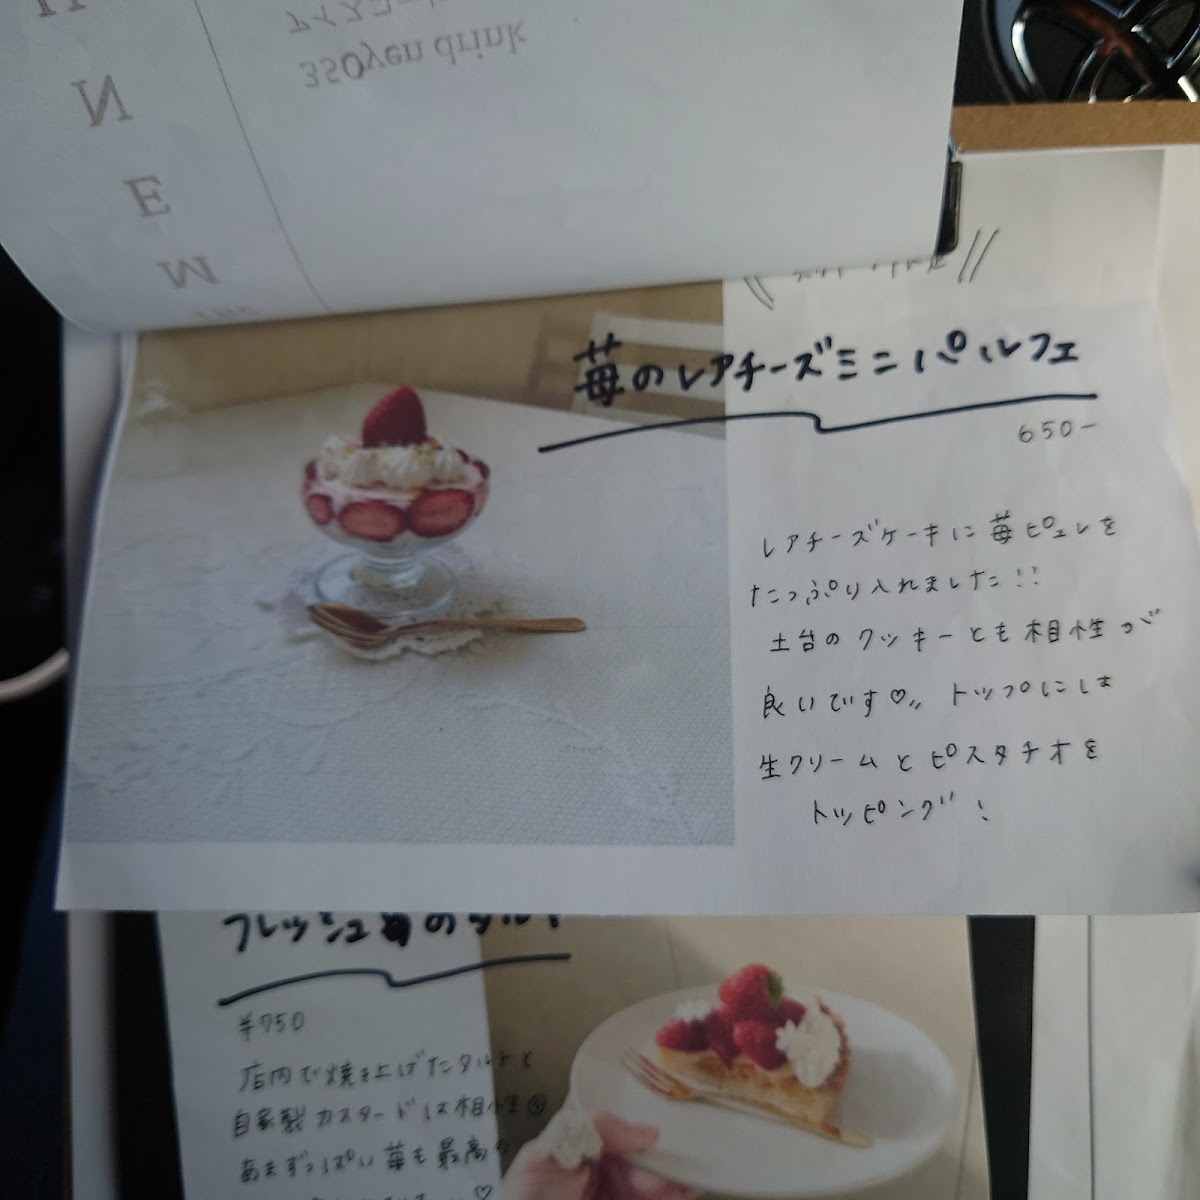 アイスコー
350yen drink
N
E
M
苺のレアチーズミニパルフェ
650-
レアチーズケーキに苺ピュレを
たっぷり入れました!!
土台のクッキーとも相性が
良いです♡〃 トップには
生クリームとピスタチオを
トッピング!
フレッシュ苺のタルト
¥750
店内で焼き上げたタルトと
自家製カスタードは相性◎
あまずっぱい苺も最高の